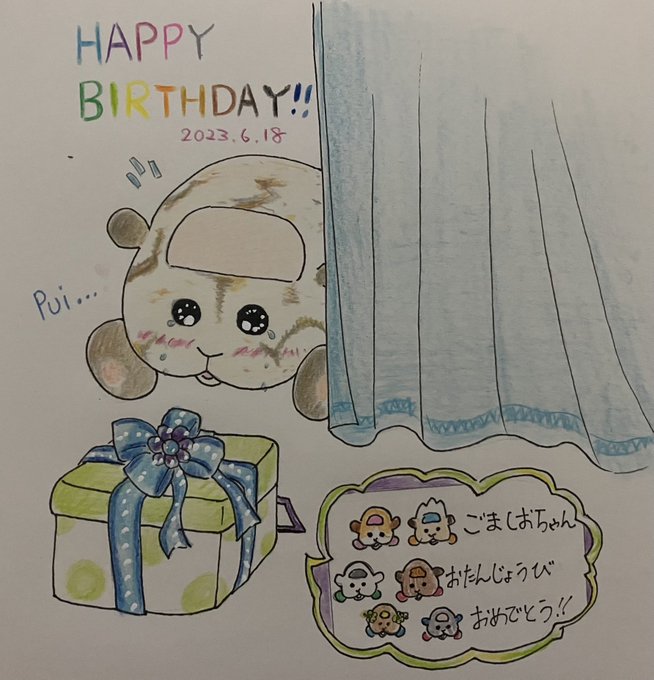 HAPPY
BIRTHDAY!!
2023.6.18
Pui...
ごましおちゃん
おたんじょうび
おめでとう!!